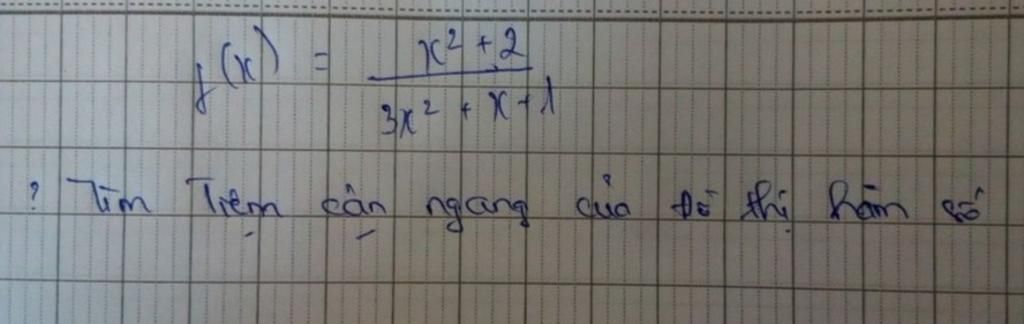 f(x) = x² + 2 / 3x² + x + 1
? Tìm Tiệm cận ngang của đồ thị hàm số